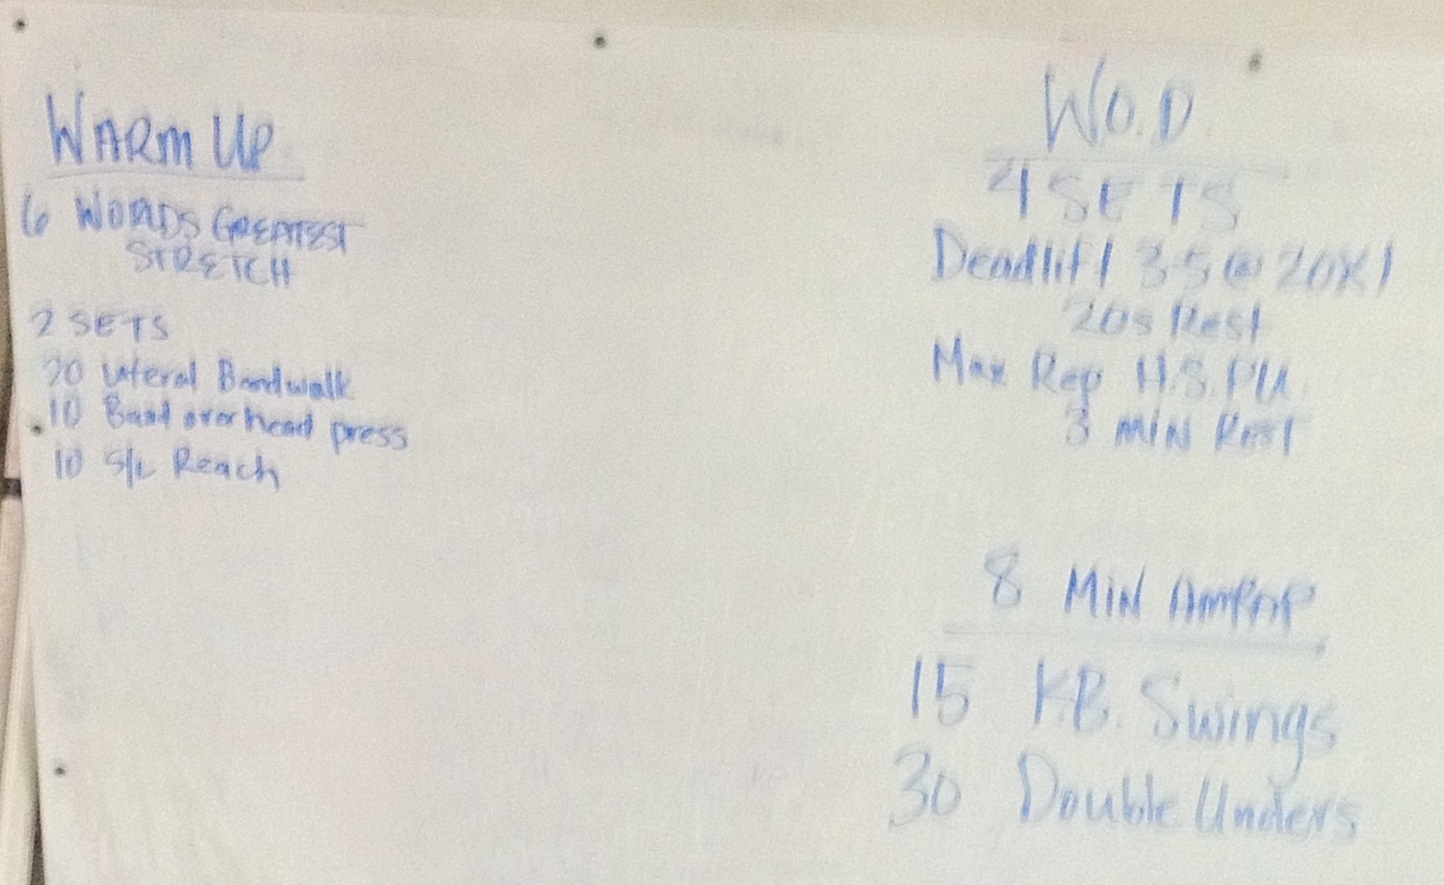 WARM UP
6 WORLDS GREATEST
STRETCH
2 SETS
20 Lateral Bandwalk
10 Band overhead press
10 S/L Reach
W.O.D.
4 SETS
Deadlift 3-5 @ 20X1
20s Rest
Max Rep H.S.PU.
3 MIN REST
8 MIN AMRAP
15 K.B. Swings
30 Double Unders